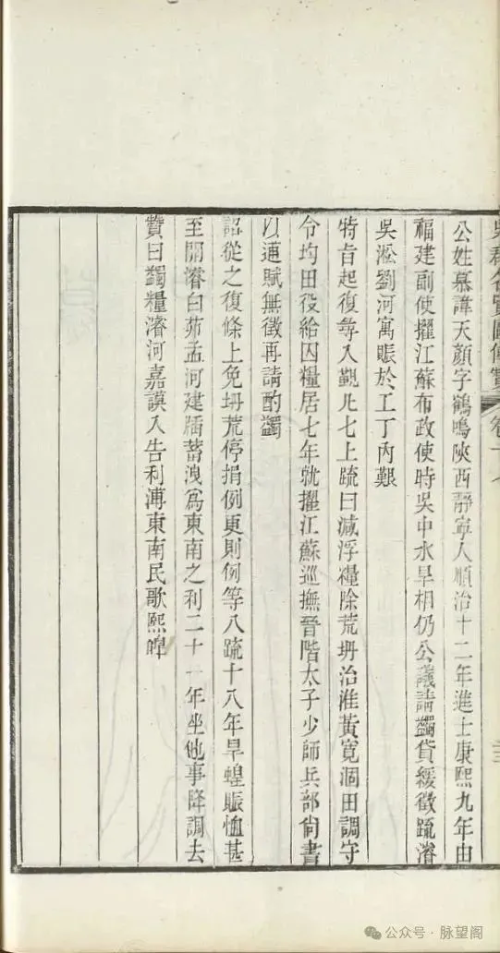 吳郡名賢圖傳贊 卷十
公姓慕諱天顏字鶴鳴陝西靜寧人順治十二年進士康熙九年由
福建副使擢江蘇布政使時吳中水旱相仍公議請蠲貸緩徵疏濬
吳淞劉河寓賑於工丁內艱
特旨起復尋入覲凡七上疏曰減浮糧除荒坍治淮黃寬涸田調守
令均田役給囚糧居七年就擢江蘇巡撫晉階太子少師兵部尙書
以逋賦無徵再請酌蠲
詔從之復條上免坍荒停捐例更則例等八疏十八年旱蝗賑恤甚
至開濬白茆孟河建牐蓄洩爲東南之利二十一年坐他事降調去
贊曰蠲糧濬河嘉謨入告利溥東南民歌熙皥
公众号·脉望阁